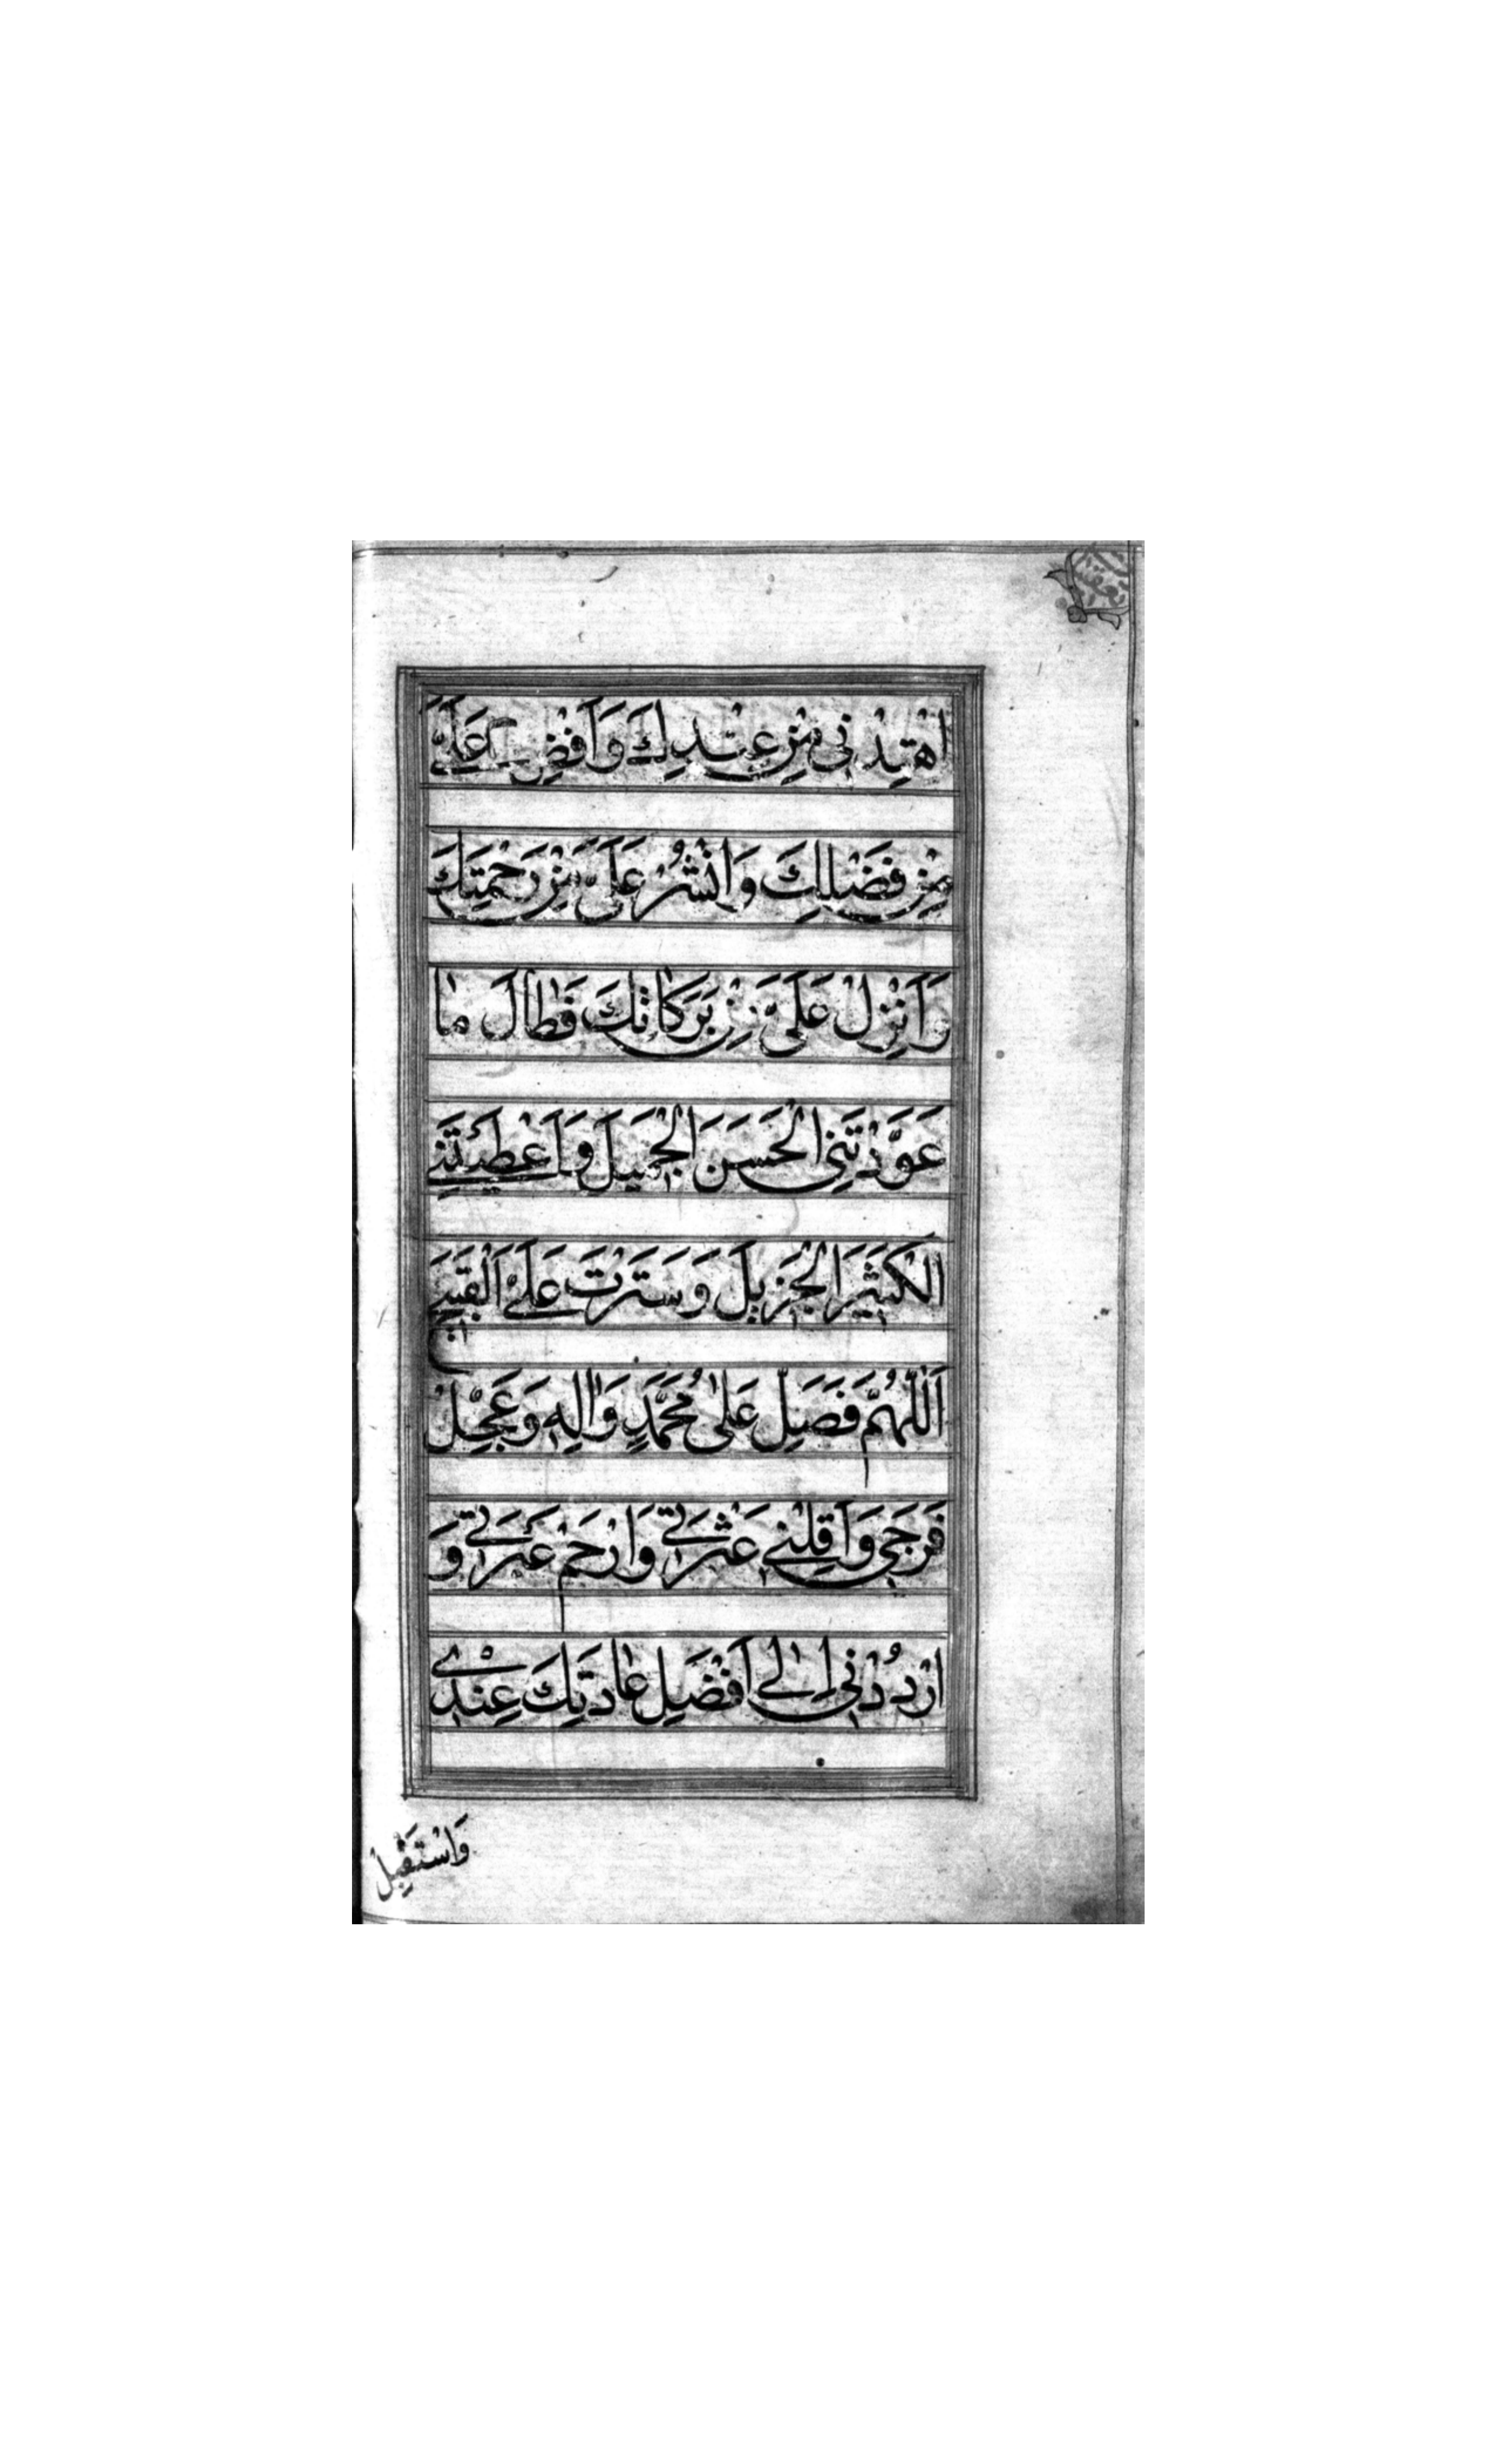 اهْدِنی مِنْ عِنْدِكَ وَاَفِضْ عَلَیَّ
مِنْ فَضْلِكَ وَانْشُرْ عَلَیَّ مِنْ رَحْمَتِكَ
وَاَنْزِلْ عَلَیَّ مِنْ بَرَكَاتِكَ فَطَالَ مَا
عَوَّدْتَنِی الْحَسَنَ الْجَمِیلَ وَاَعْطَیْتَنِی
الْكَثِیرَ الْجَزِیلَ وَسَتَرْتَ عَلَیَّ الْقَبِیحَ
اَللّٰهُمَّ فَصَلِّ عَلٰی مُحَمَّدٍ وَاٰلِهِ وَعَجِّلْ
فَرَجِی وَاَقِلْنِی عَثْرَتِی وَارْحَمْ عَبْرَتِی وَ
ارْدُدْنِی اِلٰی اَفْضَلِ عَادَتِكَ عِنْدِی
وَاسْتَقْبِلْ